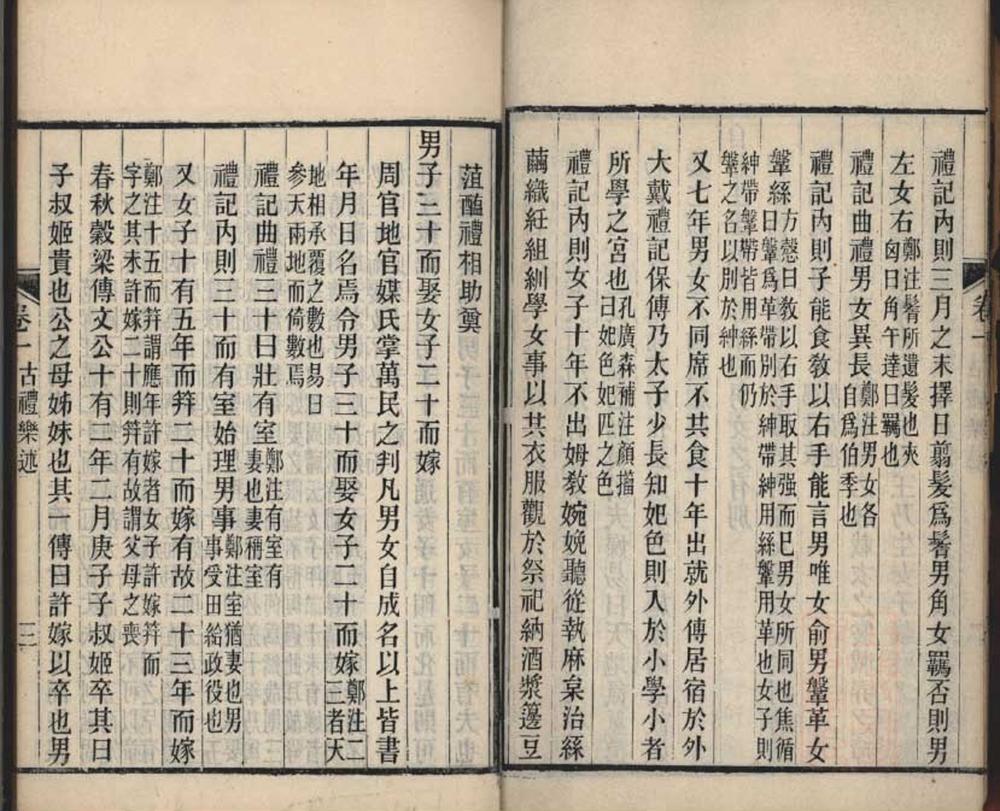 禮記內則三月之末擇日翦髮爲鬌男角女羈否則男
左女右鄭注鬌所遺髮也夾
囟曰角午達曰羈也
禮記曲禮男女異長鄭注男女各
自爲伯季也
禮記內則子能食敎以右手能言男唯女俞男鞶革女
鞶絲方慤曰敎以右手取其强而巳男女所同也焦循
曰鞶爲革帶別於紳帶紳用絲鞶用革也女子則
紳帶鞶帶皆用絲而仍
鞶之名以別於紳也
又七年男女不同席不共食十年出就外傅居宿於外
大戴禮記保傅乃太子少長知妃色則入於小學小者
所學之宮也孔廣森補注顏擂
曰妃色妃匹之色
禮記內則女子十年不出姆敎婉娩聽從執麻枲治絲
繭織紝組紃學女事以共衣服觀於祭祀納酒漿籩豆
卷一
菹醢禮相助奠
男子三十而娶女子二十而嫁
周官地官媒氏掌萬民之判凡男女自成名以上皆書
年月日名焉令男子三十而娶女子二十而嫁鄭注二
三者天
地相承覆之數也易曰
參天兩地而倚數焉
禮記曲禮三十曰壯有室鄭注有室有
妻也妻稱室
禮記內則三十而有室始理男事鄭注室猶妻也男
事受田給政役也
又女子十有五年而筓二十而嫁有故二十三年而嫁
鄭注十五而筓謂應年許嫁者女子許嫁筓而
字之其未許嫁二十則筓有故謂父母之喪
春秋穀梁傳文公十有二年二月庚子子叔姬卒其曰
子叔姬貴也公之母姊妹也其傳曰許嫁以卒也男
卷一 古禮樂述 三